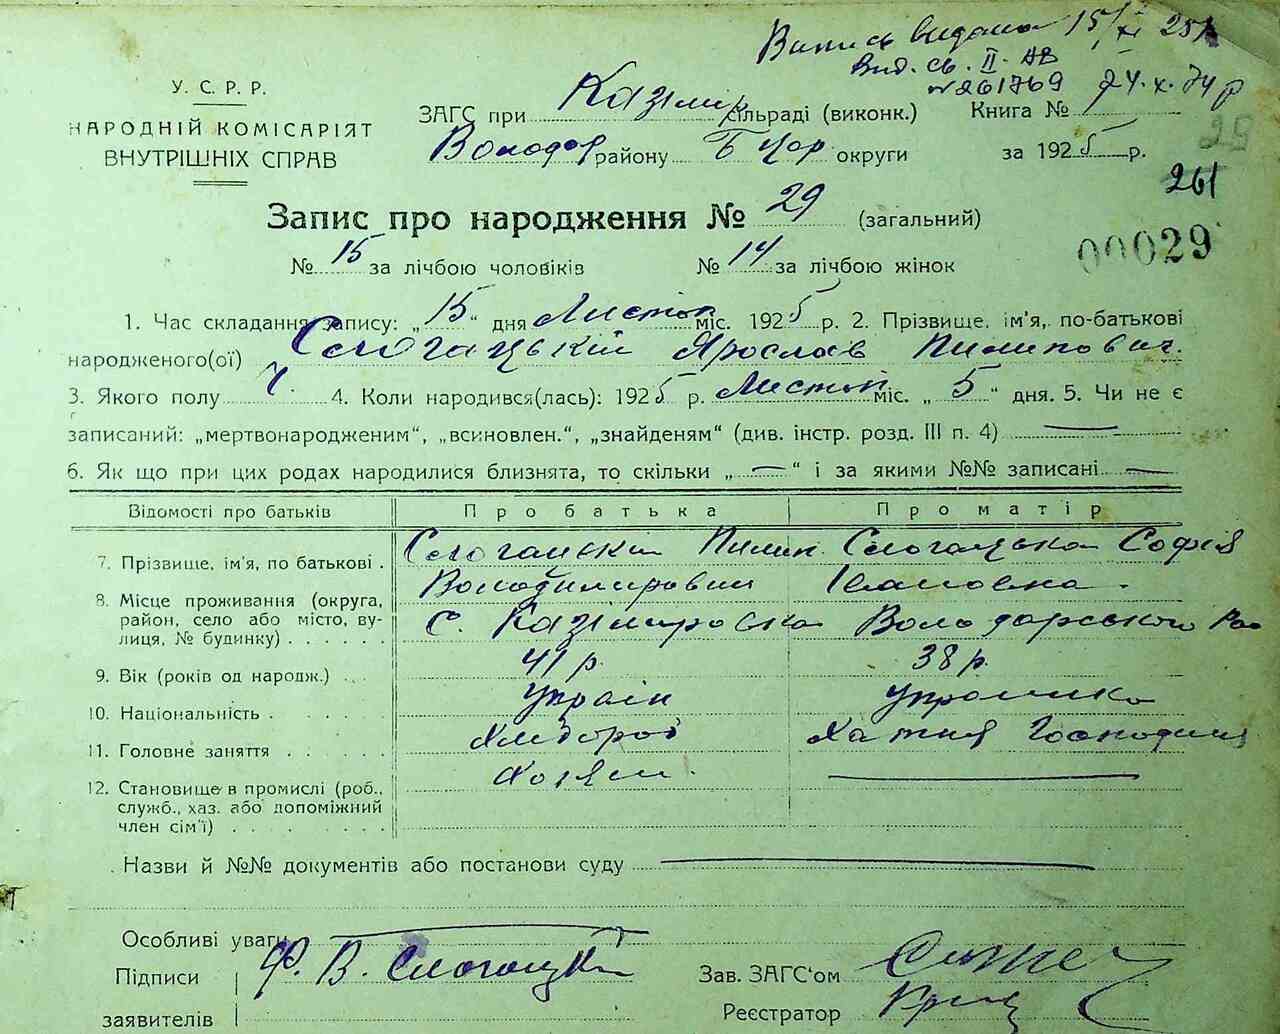 Випись видана 15/XI 25р
Вид. св. II-АВ
№261769 24.X.74р
У. С. Р. Р.
НАРОДНІЙ КОМІСАРІЯТ
ВНУТРІШНІХ СПРАВ
ЗАГС при Казімир сільраді (виконк.) Книга №
Володар району Б Цер округи за 1925 р.
25
261
Запис про народження № 29 (загальний)
00029
№ 15 за лічбою чоловіків № 14 за лічбою жінок
1. Час складання запису: „15“ дня Листоп міс. 1925 р. 2. Прізвище, ім'я, по-батькові
народженого(ої) Ярослав Пилипович.
3. Якого полу Ч. 4. Коли народився(лась): 1925 р. Листоп міс. „5“ дня. 5. Чи не є
записаний: „мертвонародженим“, „всиновлен.“, „знайденям“ (див. інстр. розд. III п. 4) —
6. Як що при цих родах народилися близнята, то скільки „—“ і за якими №№ записані —
Відомості про батьків Про батька Про матір
7. Прізвище, ім'я, по батькові . Пилип Софія
Володимирович Івановна
8. Місце проживання (округа,
район, село або місто, ву-
лиця, № будинку) . . . . . С. Казіміровка Володарського Рай
9. Вік (років од народж.) . . . 41 р. 38 р.
10. Національність . . . . . . Україн українка
11. Головне заняття . . . . . Хлібороб Хатня Господиня
12. Становище в промислі (роб.,
служб., хаз. або допоміжний
член сім'ї) . . . . . . . . Хозяин. —
Назви й №№ документів або постанови суду —
Особливі уваги —
Підписи Ф. В.
заявителів
Зав. ЗАГС'ом
Реєстратор